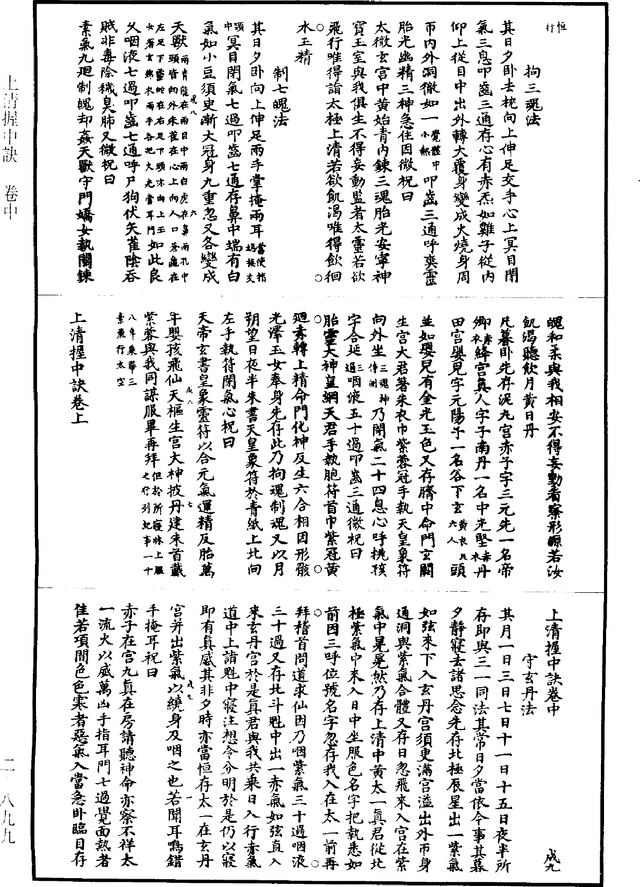 恒行
拘三魂法
其日夕卧去枕向上伸足交手心上冥目閉
氣三息叩齒三通存心有赤炁如雞子從內
仰上從目中出外轉大覆身變成火燒身周
帀內外洞徹如一覺體中小熱叩齒三通呼爽靈
胎光幽精三神急住因微祝曰
太微玄宮中黃始青內鍊三魂胎光安寧神
寶玉室與我俱生不得妄動監者太靈若欲
飛行唯得詣太極上清若欲飢渴唯得飲徊
水玉精
制七魄法
其日夕卧向上伸足兩手掌掩兩耳當使指端相交項中
冥目閉氣七過叩齒七通存鼻中端有白
氣如小豆須臾漸大冠身九重忽又各變成
天獸兩青龍在目中兩白虎在鼻兩孔中頭皆向外朱雀在心上向人口蒼龜在左足下靈蛇在右足下頭亦向上玉女著玄錦衣兩手各把火光當耳門如此良
久咽液七過叩齒七通呼尸狗伏矢雀陰吞
賊非毒除穢臭肺又微祝曰
素氣九迴制魄却姦天獸守門嬌女執關鍊
魄和柔與我相安不得妄動看察形源若汝
飢渴聽飲月黃日丹
凡暮卧先存泥丸宮赤子字三元先一名帝
卿赤衣絳宮真人字子南丹一名中光堅赤衣丹
田宮嬰兒字元陽子一名谷下玄黃衣凡六人頭
並如嬰兒有金光玉色又存臍中命門玄闕
生宮大君著朱衣巾紫蓉冠手執天皇象符
向外坐三魂神侍側乃閉氣二十四息心呼桃孩
字合延三過咽液五十過叩齒三通微祝曰
胎靈大神皇綱天君手執胞符首巾紫冠黃
迴素轉上精命門化神反生六合相因形骸
光澤玉女奉身先存此乃拘魂制魂又以月
朔望日夜半朱書天皇象符於青紙上北向
左手執符閉氣心祝曰
天帝玄書皇象靈符以合元氣運精反胎萬
年嬰孩飛仙天樞生宮大神披丹建朱首戴
紫蓉與我同謀服畢再拜但於所寢牀上服之行列紀事一十八年乘三素飛行太空
上清握中訣卷上
上清握中訣卷中
成九
守玄丹法
其月一日三日七日十一日十五日夜半所
存即與三一同法其常日夕當依今事其暮
夕靜寢去諸思念先存北極辰星出一紫氣
如弦來下入玄丹宮須臾滿宮溢出外帀身
通洞與紫氣合體又存日忽飛來入宮在紫
氣中晃晃然乃存上清中黃太一真君從北
極紫氣中來入日中坐服色名字把執悉如
前因三呼位號名字忽存我入在太一前再
拜稽首問道求仙因乃咽紫氣三十過咽液
三十過又存北斗魁中出一赤氣如弦直入
來玄丹宮於是真君與我共乘日入行赤氣
道中上詣魁中寢注想令分明於是仍以寢
即有真感其非夕時亦當恒存太一在玄丹
宮并出紫氣以繞身及咽之也若聞耳鳴錯
手掩耳祝曰
赤子在宮九真在房請聽神命亦察不祥太
一流火以威萬凶手指耳門七過覺面熱者
佳若項間色色寒者惡氣入當急卧臨目存
上清握中訣 卷中
二一八九九